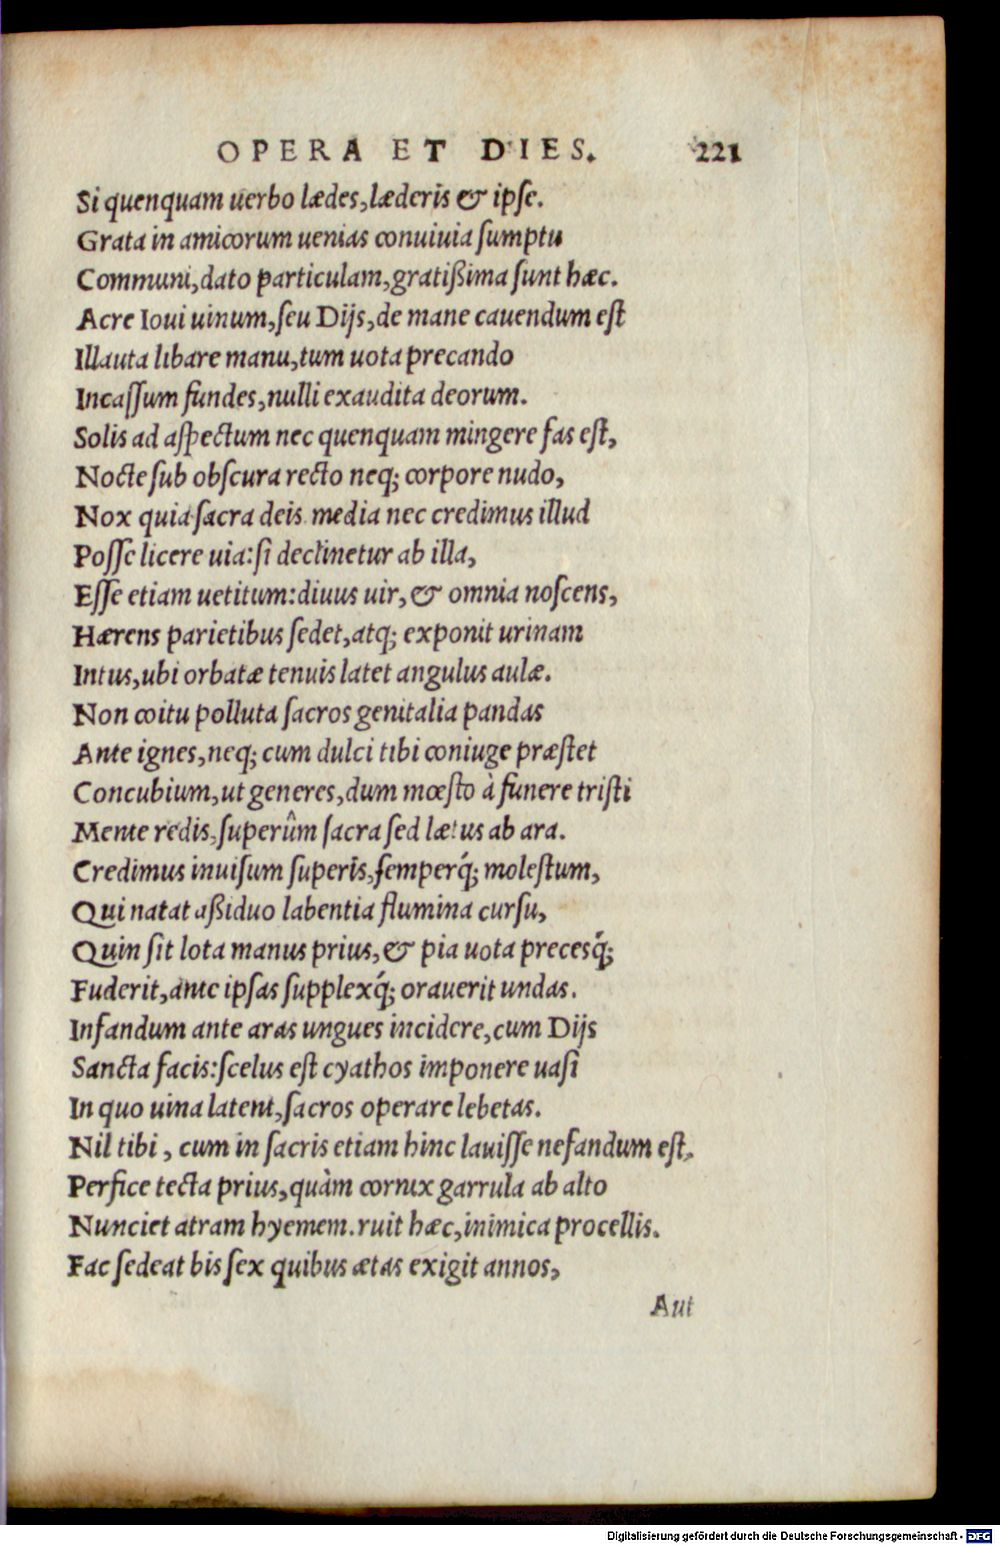 OPERA ET DIES. 221
Si quenquam uerbo lædes, læderis & ipse.
Grata in amicorum uenias conuiuia sumptu
Communi, dato particulam, gratißima sunt hæc.
Acre Ioui uinum, seu Dijs, de mane cauendum est
Illauta libare manu, tum uota precando
Incassum fundes, nulli exaudita deorum.
Solis ad aspectum nec quenquam mingere fas est,
Nocte sub obscura recto neq; corpore nudo,
Nox quia sacra deis media nec credimus illud
Posse licere uia: si declinetur ab illa,
Esse etiam uetitum: diuus uir, & omnia noscens,
Hærens parietibus sedet, atq; exponit urinam
Intus, ubi orbatæ tenuis latet angulus aulæ.
Non coitu polluta sacros genitalia pandas
Ante ignes, neq; cum dulci tibi coniuge præstet
Concubium, ut generes, dum mœsto à funere tristi
Mente redis, superûm sacra sed lætus ab ara.
Credimus inuisum superis, semperq́; molestum,
Qui natat aßiduo labentia flumina cursu,
Quin sit lota manus prius, & pia uota precesq́;
Fuderit, ante ipsas supplexq́; orauerit undas.
Infandum ante aras ungues incidere, cum Dijs
Sancta facis: scelus est cyathos imponere uasi
In quo uina latent, sacros operare lebetas.
Nil tibi, cum in sacris etiam hinc lauisse nefandum est,
Perfice tecta prius, quàm cornix garrula ab alto
Nunciet atram hyemem. ruit hæc, inimica procellis.
Fac sedeat bis sex quibus ætas exigit annos,
Aut
Digitalisierung gefördert durch die Deutsche Forschungsgemeinschaft - DFG